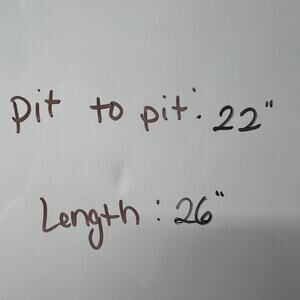 pit to pit: 22"
Length: 26"